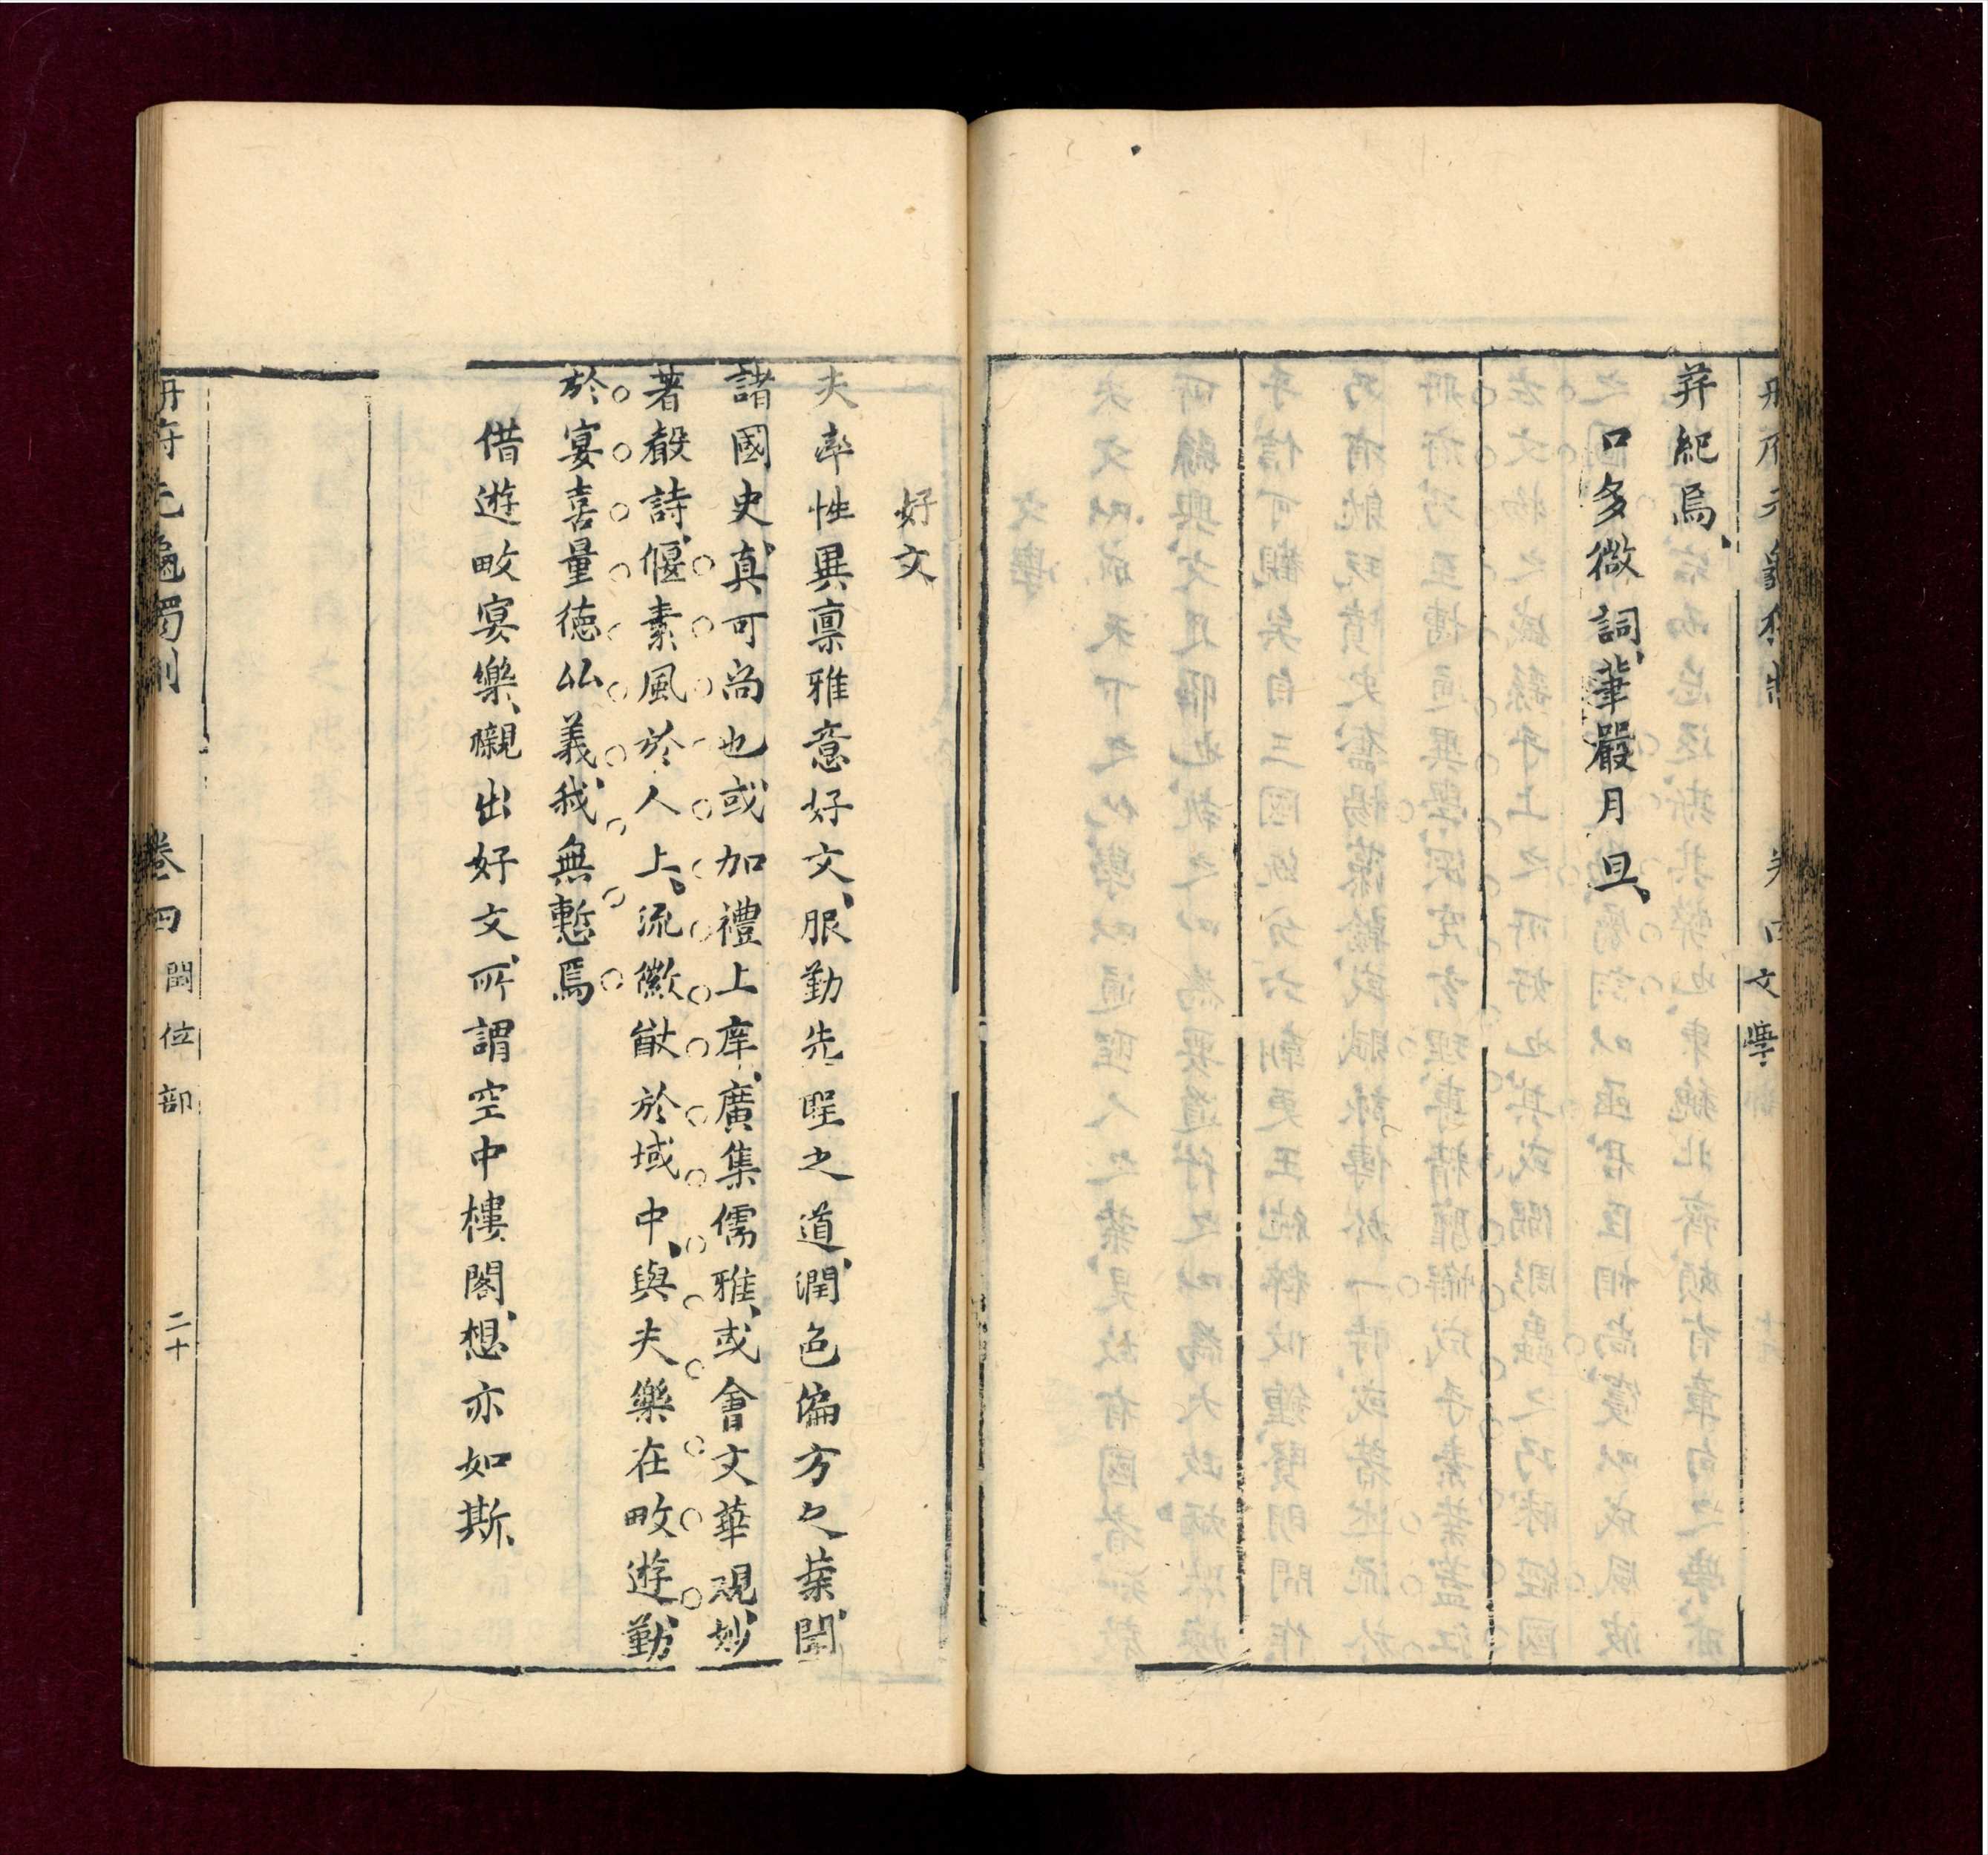 卷四 文學
并紀焉
口多微詞筆嚴月旦
好文
夫率性異禀雅意好文服勤先聖之道潤色偏方之業閱
諸國史真可尚也或加禮上庠廣集儒雅或會文華觀妙
著聲詩偃素風於人上流徽猷於域中與夫樂在畋遊勤
於宴喜量德以義我無慙焉
借遊畋宴樂襯出好文所謂空中樓閣想亦如斯
冊府元龜獨制 卷四 閏位部 二十